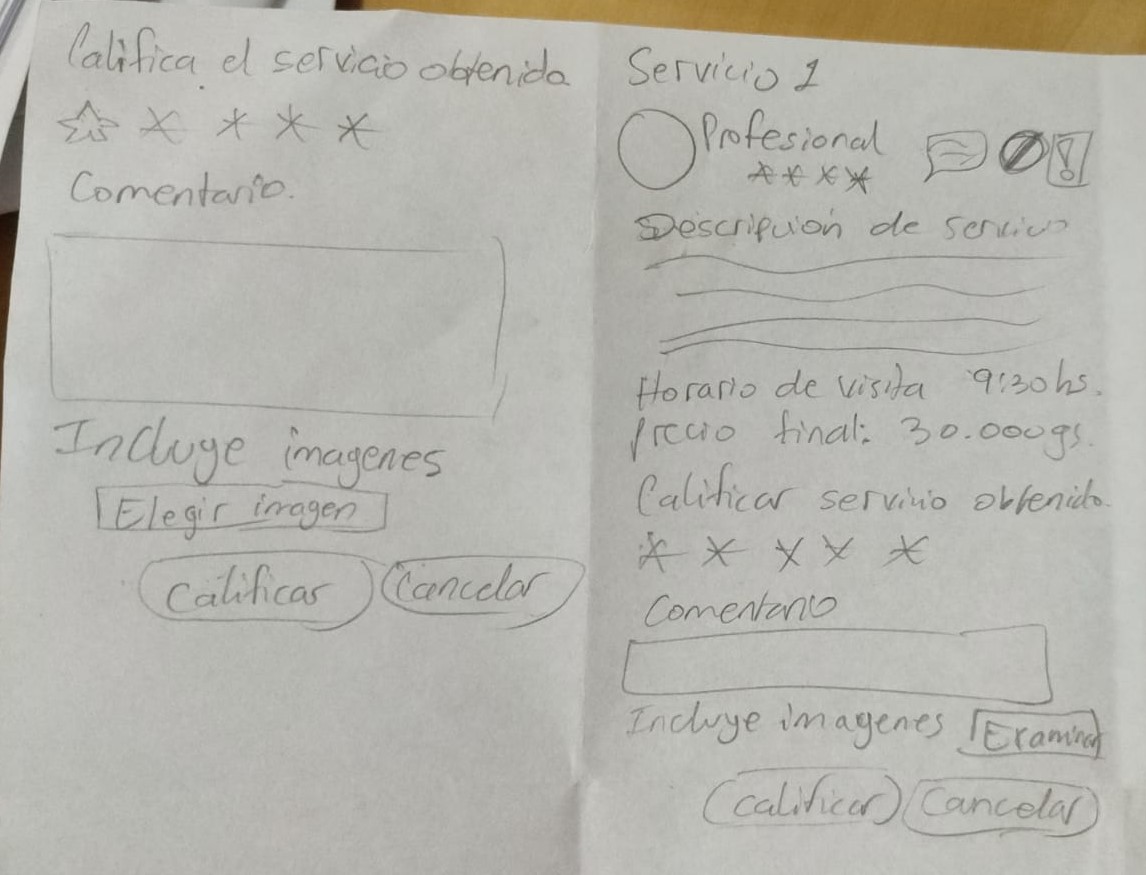 Califica el servicio obtenido
Comentario.
Incluye imagenes
Elegir imagen
Calificar Cancelar
Servicio 1
Profesional
Descripción de servicio
Horario de visita 9:30hs.
precio final: 30.000gs.
Calificar servicio obtenido.
Comentario
Incluye imagenes Examinar
Calificar Cancelar